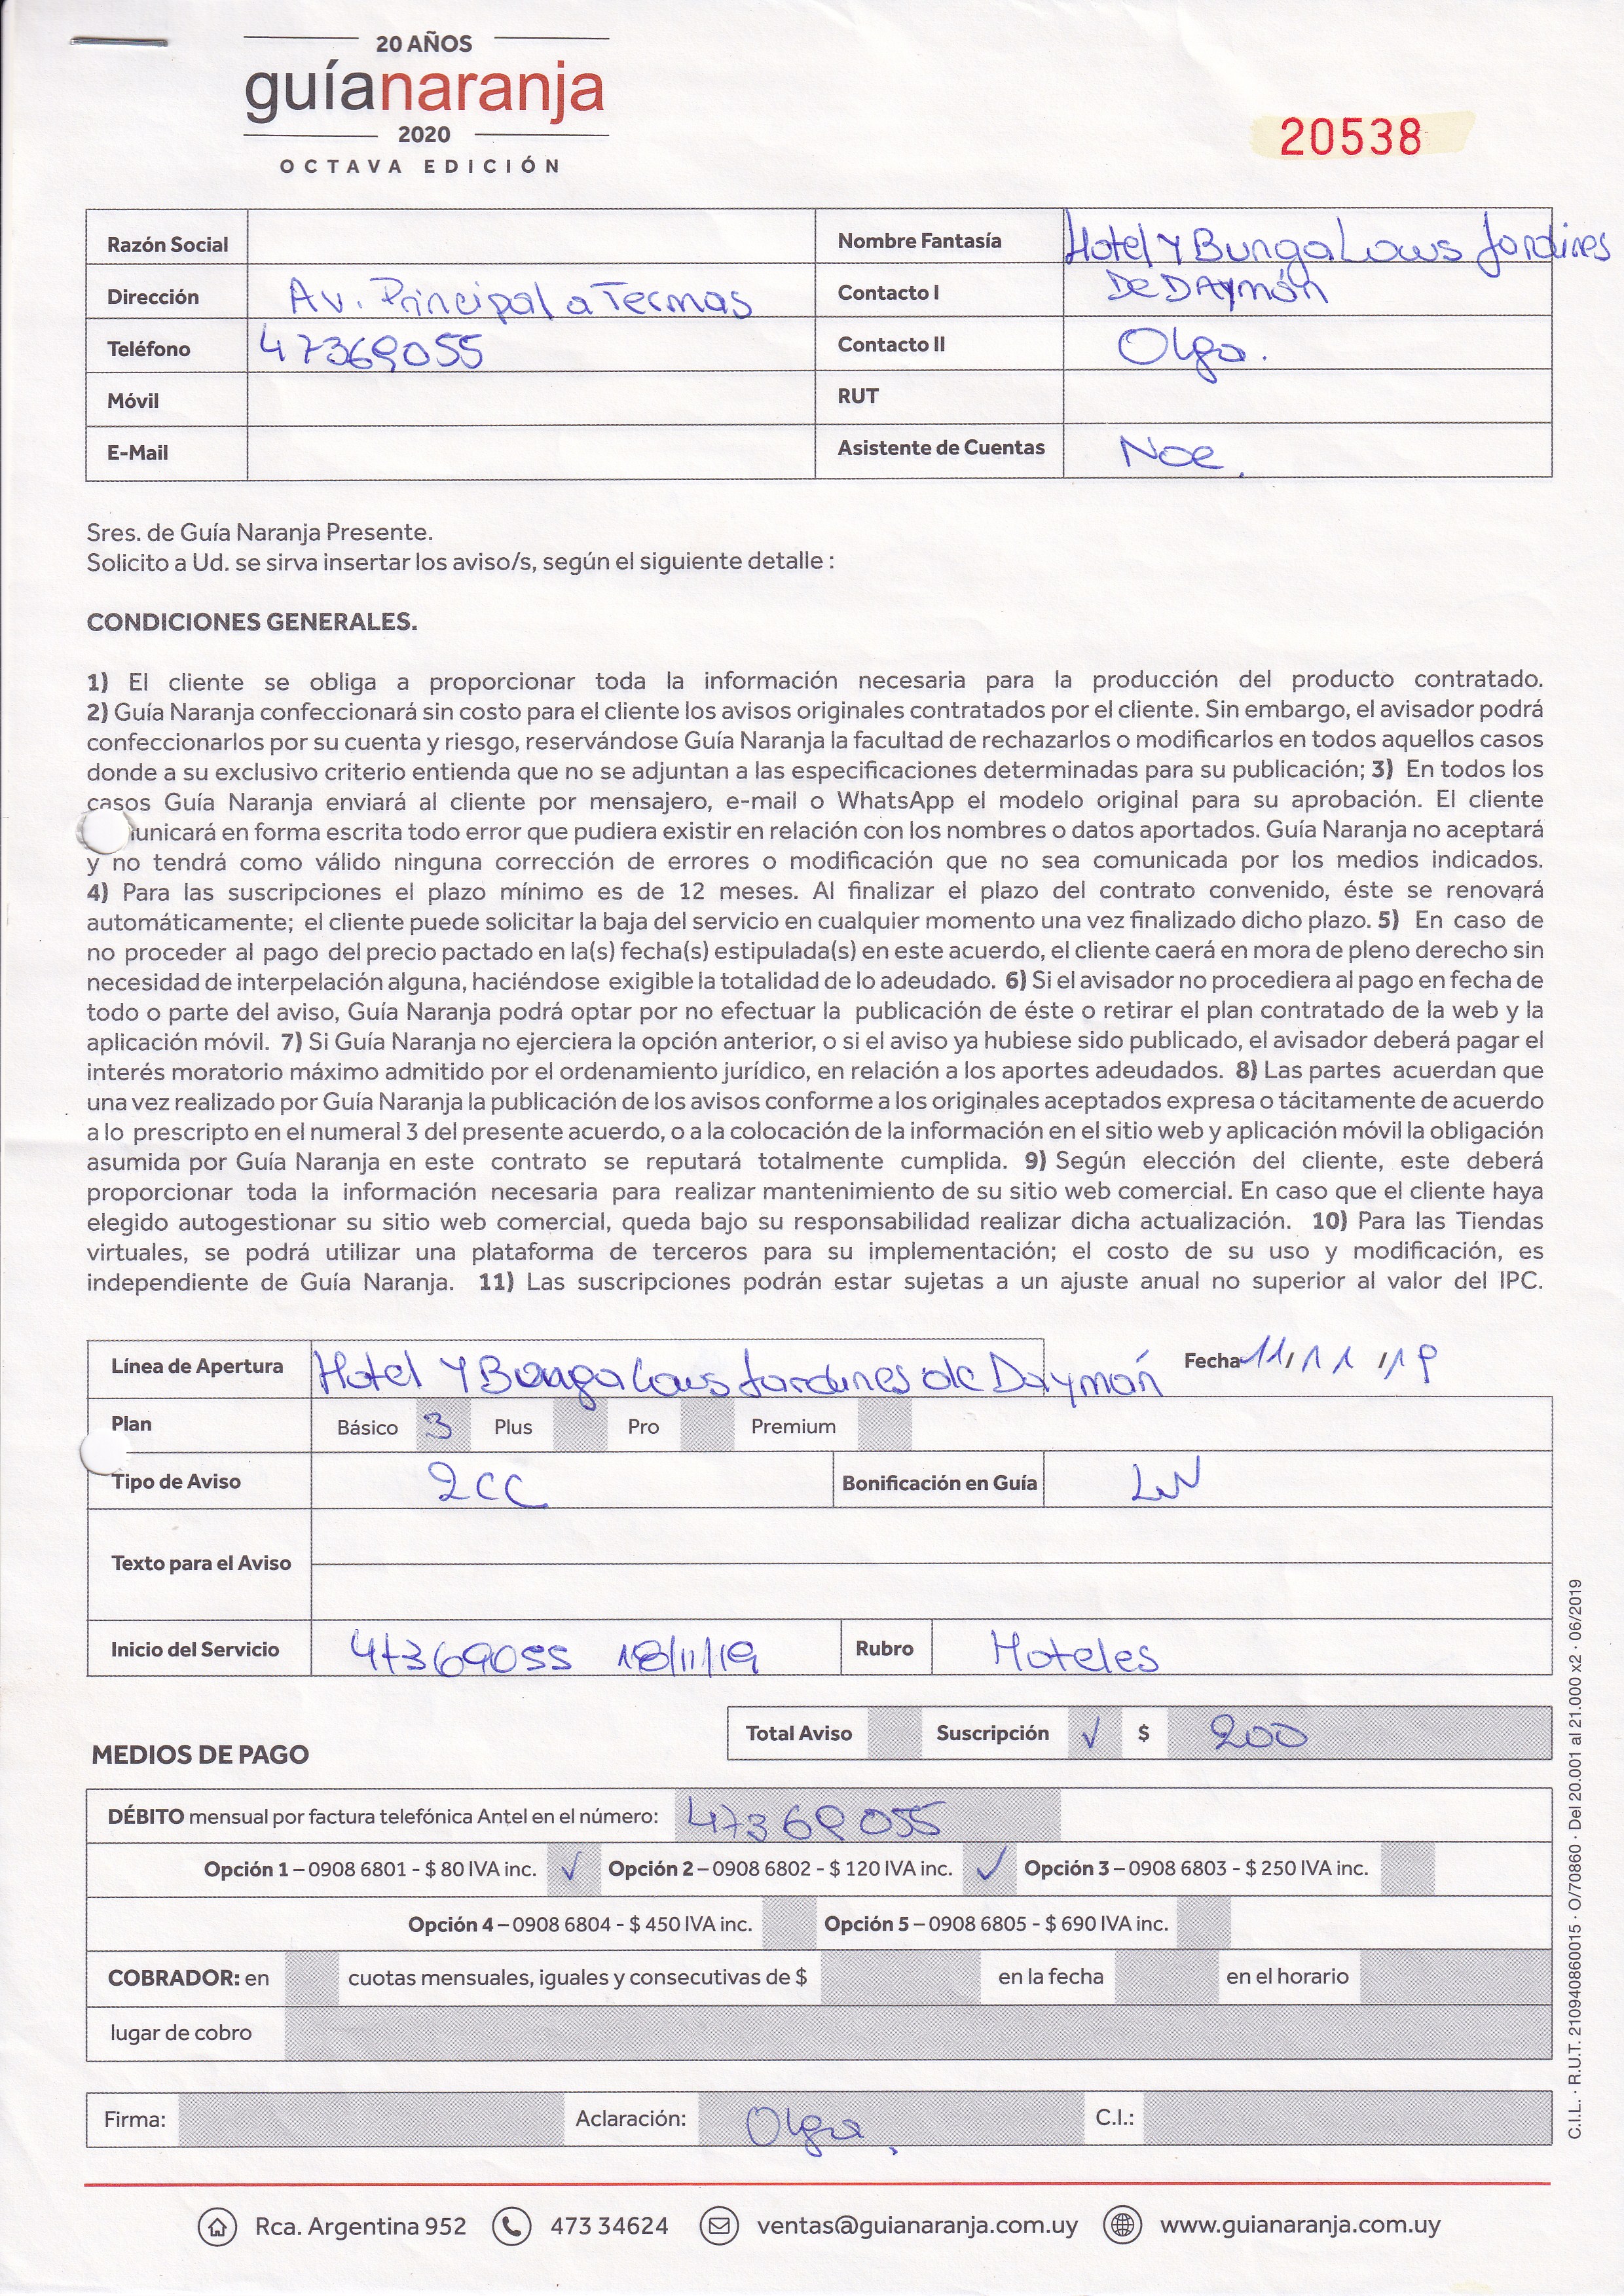 20 AÑOS
guíanaranja
2020
OCTAVA EDICIÓN
20538
Razón Social
Nombre Fantasía Hotel Y Bungalows Jardines
Dirección Av. Principal a Termas
Contacto I De DAymán
Teléfono 47369055
Contacto II Olga.
Móvil
RUT
E-Mail
Asistente de Cuentas Noe.
Sres. de Guía Naranja Presente.
Solicito a Ud. se sirva insertar los aviso/s, según el siguiente detalle :
CONDICIONES GENERALES.
1) El cliente se obliga a proporcionar toda la información necesaria para la producción del producto contratado.
2) Guía Naranja confeccionará sin costo para el cliente los avisos originales contratados por el cliente. Sin embargo, el avisador podrá
confeccionarlos por su cuenta y riesgo, reservándose Guía Naranja la facultad de rechazarlos o modificarlos en todos aquellos casos
donde a su exclusivo criterio entienda que no se adjuntan a las especificaciones determinadas para su publicación; 3) En todos los
casos Guía Naranja enviará al cliente por mensajero, e-mail o WhatsApp el modelo original para su aprobación. El cliente
unicará en forma escrita todo error que pudiera existir en relación con los nombres o datos aportados. Guía Naranja no aceptará
y no tendrá como válido ninguna corrección de errores o modificación que no sea comunicada por los medios indicados.
4) Para las suscripciones el plazo mínimo es de 12 meses. Al finalizar el plazo del contrato convenido, éste se renovará
automáticamente; el cliente puede solicitar la baja del servicio en cualquier momento una vez finalizado dicho plazo. 5) En caso de
no proceder al pago del precio pactado en la(s) fecha(s) estipulada(s) en este acuerdo, el cliente caerá en mora de pleno derecho sin
necesidad de interpelación alguna, haciéndose exigible la totalidad de lo adeudado. 6) Si el avisador no procediera al pago en fecha de
todo o parte del aviso, Guía Naranja podrá optar por no efectuar la publicación de éste o retirar el plan contratado de la web y la
aplicación móvil. 7) Si Guía Naranja no ejerciera la opción anterior, o si el aviso ya hubiese sido publicado, el avisador deberá pagar el
interés moratorio máximo admitido por el ordenamiento jurídico, en relación a los aportes adeudados. 8) Las partes acuerdan que
una vez realizado por Guía Naranja la publicación de los avisos conforme a los originales aceptados expresa o tácitamente de acuerdo
a lo prescripto en el numeral 3 del presente acuerdo, o a la colocación de la información en el sitio web y aplicación móvil la obligación
asumida por Guía Naranja en este contrato se reputará totalmente cumplida. 9) Según elección del cliente, este deberá
proporcionar toda la información necesaria para realizar mantenimiento de su sitio web comercial. En caso que el cliente haya
elegido autogestionar su sitio web comercial, queda bajo su responsabilidad realizar dicha actualización. 10) Para las Tiendas
virtuales, se podrá utilizar una plataforma de terceros para su implementación; el costo de su uso y modificación, es
independiente de Guía Naranja. 11) Las suscripciones podrán estar sujetas a un ajuste anual no superior al valor del IPC.
Línea de Apertura Hotel Y Bungalows Jardines de Daymán
Fecha 11/11/19
Plan Básico 3 Plus Pro Premium
Tipo de Aviso 2CC Bonificación en Guía LN
Texto para el Aviso
Inicio del Servicio 47369055 18/11/19 Rubro Hoteles
Total Aviso Suscripción ✓ $ 200
MEDIOS DE PAGO
DÉBITO mensual por factura telefónica Antel en el número: 47369055
Opción 1 – 0908 6801 - $ 80 IVA inc. ✓ Opción 2 – 0908 6802 - $ 120 IVA inc. ✓ Opción 3 – 0908 6803 - $ 250 IVA inc.
Opción 4 – 0908 6804 - $ 450 IVA inc. Opción 5 – 0908 6805 - $ 690 IVA inc.
COBRADOR: en cuotas mensuales, iguales y consecutivas de $ en la fecha en el horario
lugar de cobro
Firma: Aclaración: Olga. C.I.:
Rca. Argentina 952 473 34624 ventas@guianaranja.com.uy www.guianaranja.com.uy
C.I.L. · R.U.T. 210940860015 · O/70860 · Del 20.001 al 21.000 x2 · 06/2019